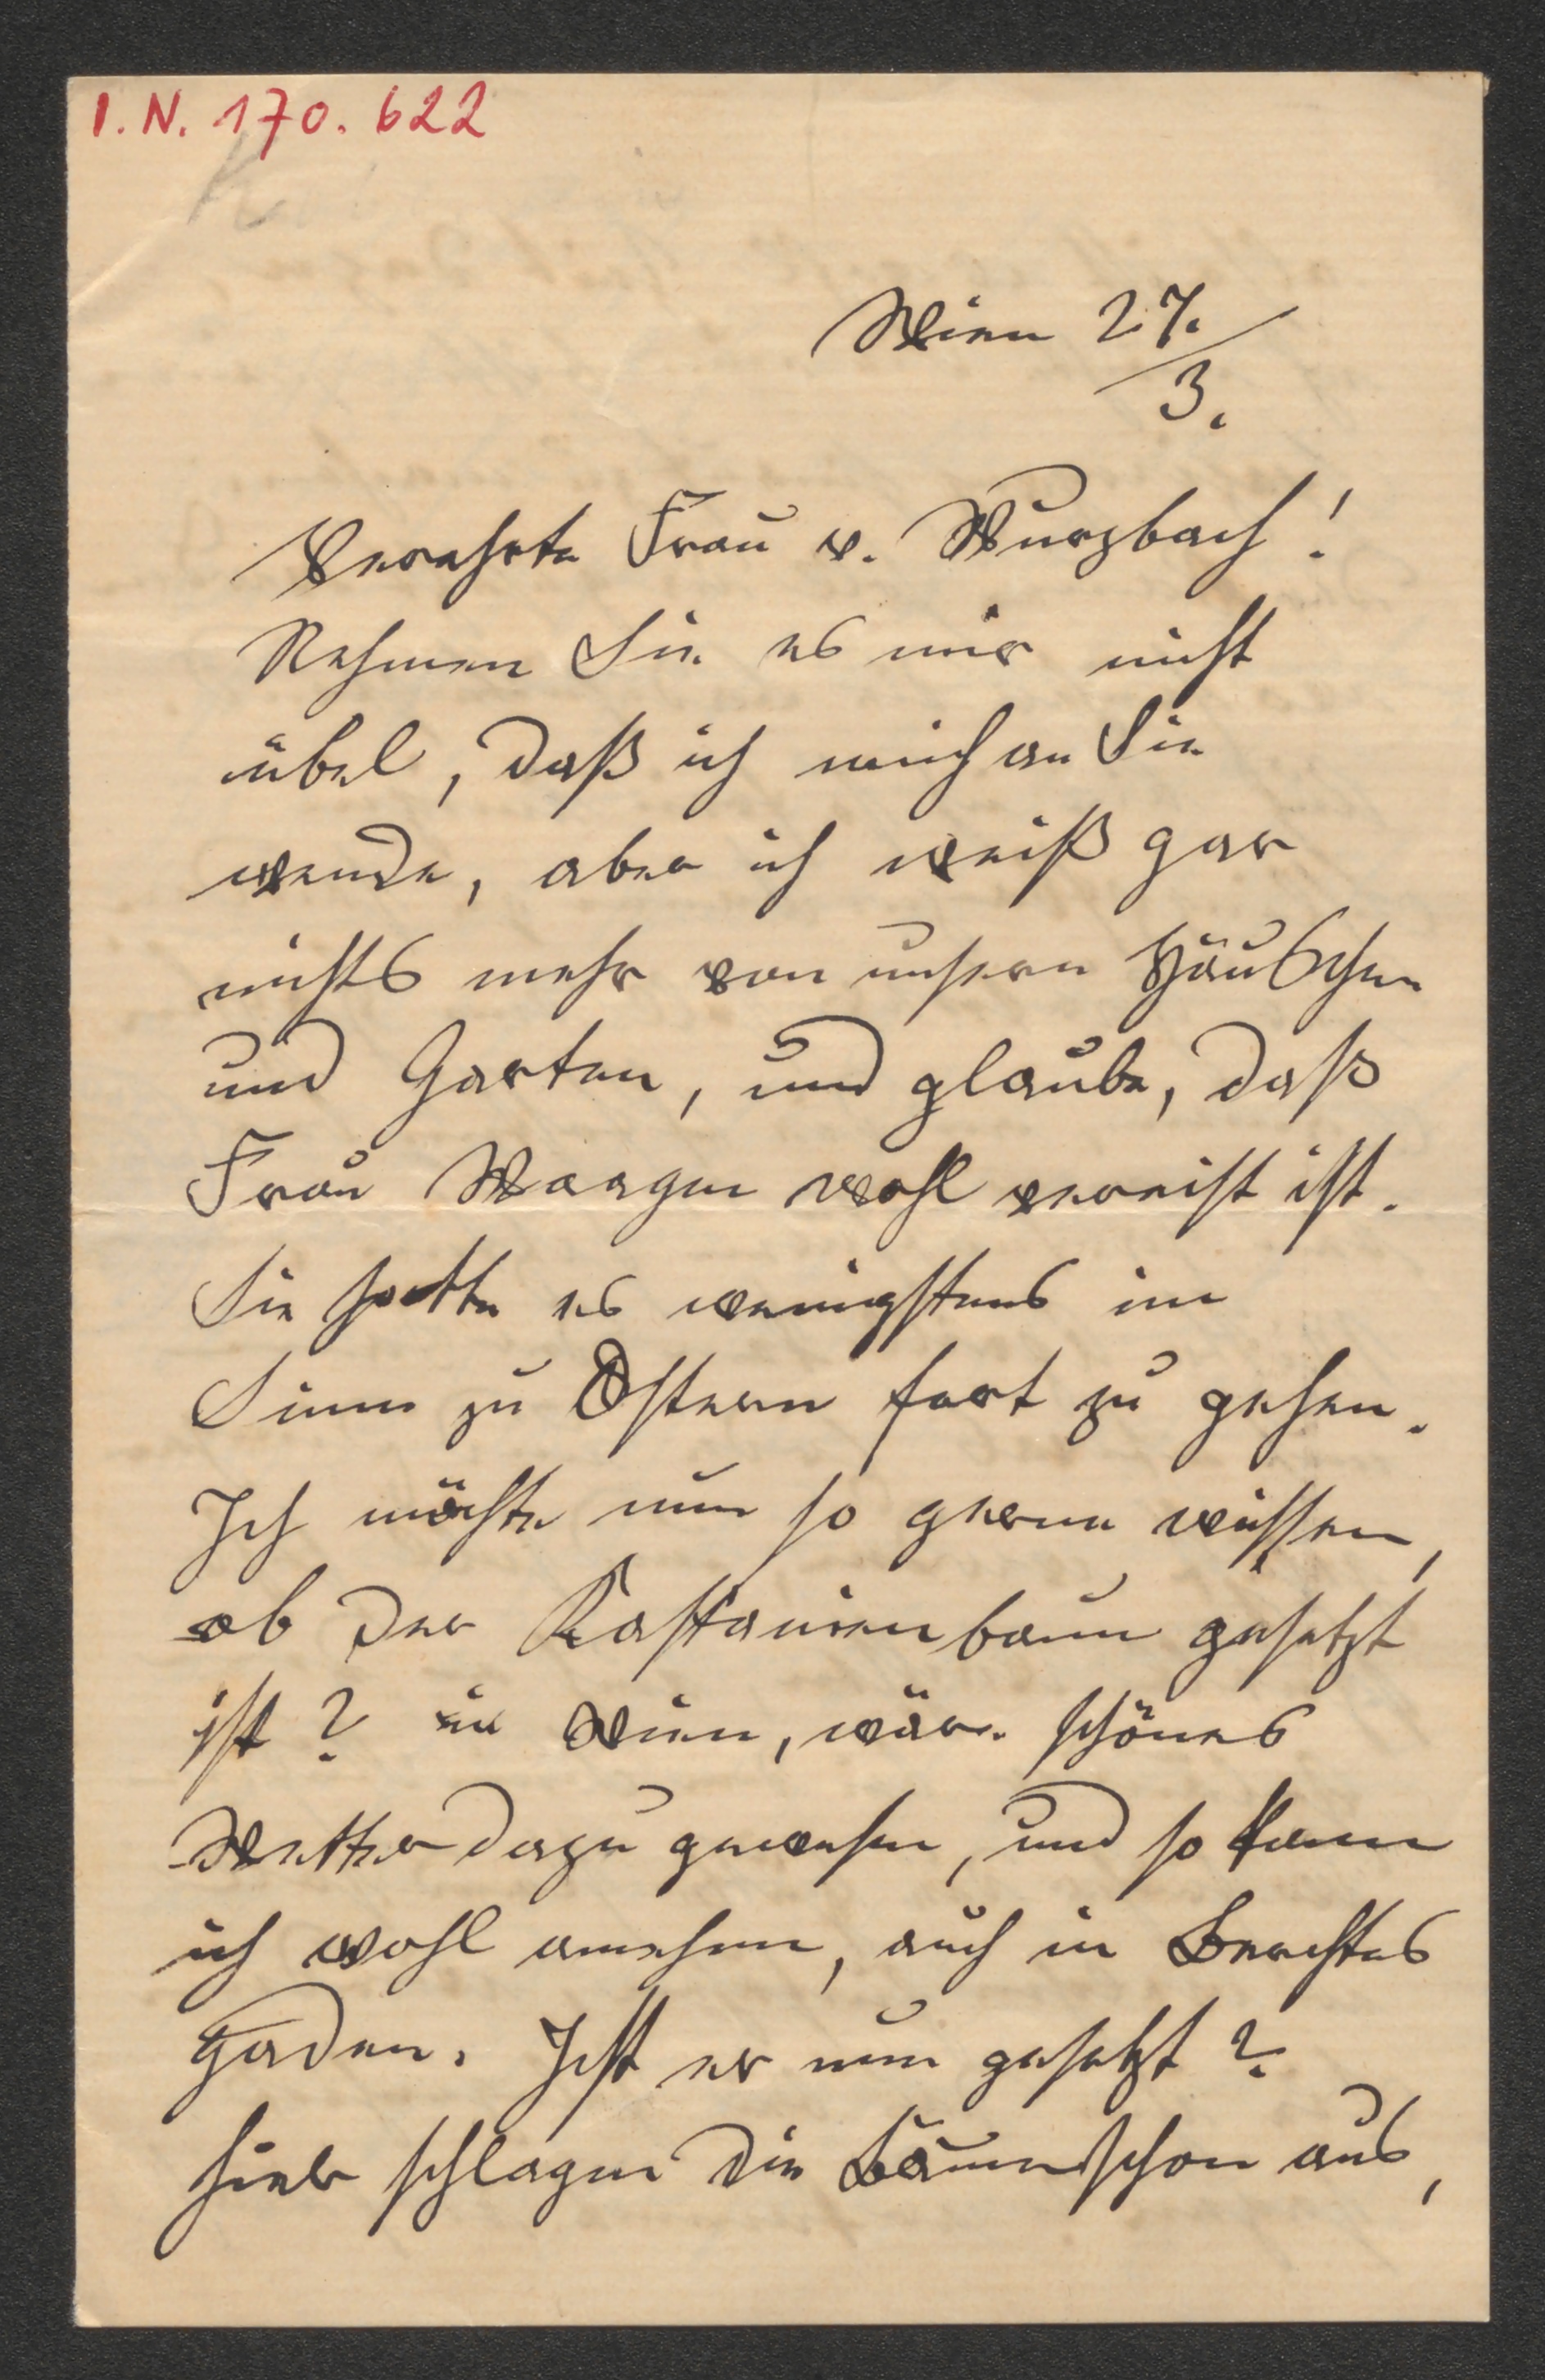 I.N. 170.622
Wien 27./3.
Verehrte Frau v. Wurzbach!
Nehmen Sie es mir nicht
übel, daß ich mich an Sie
wende, aber ich weiß gar
nichts mehr von unsern Häuschen
und Garten, und glaube, daß
Frau Waagen wohl verreist ist.
Sie hatte es wenigstens im
Sinn zu Ostern fort zu gehen.
Ich möchte nun so gerne wissen,
ob der Kastanienbaum gesetzt
ist? in Wien, wäre schönes
Wetter dazu gewesen, und so kann
ich wohl annehmen, auch in Berchtes
gaden. Ist er nun gesetzt?
hier schlagen die Bäume schon aus,